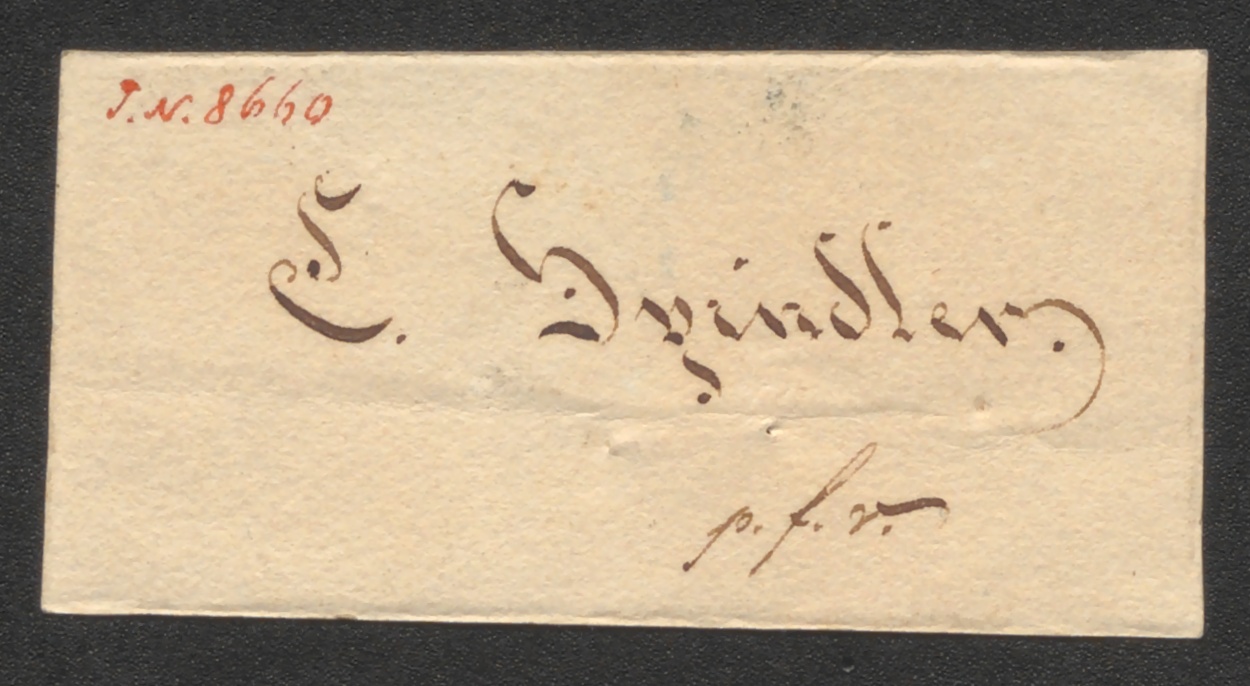 J.N. 8660
C. Spindler.
p. f. v.